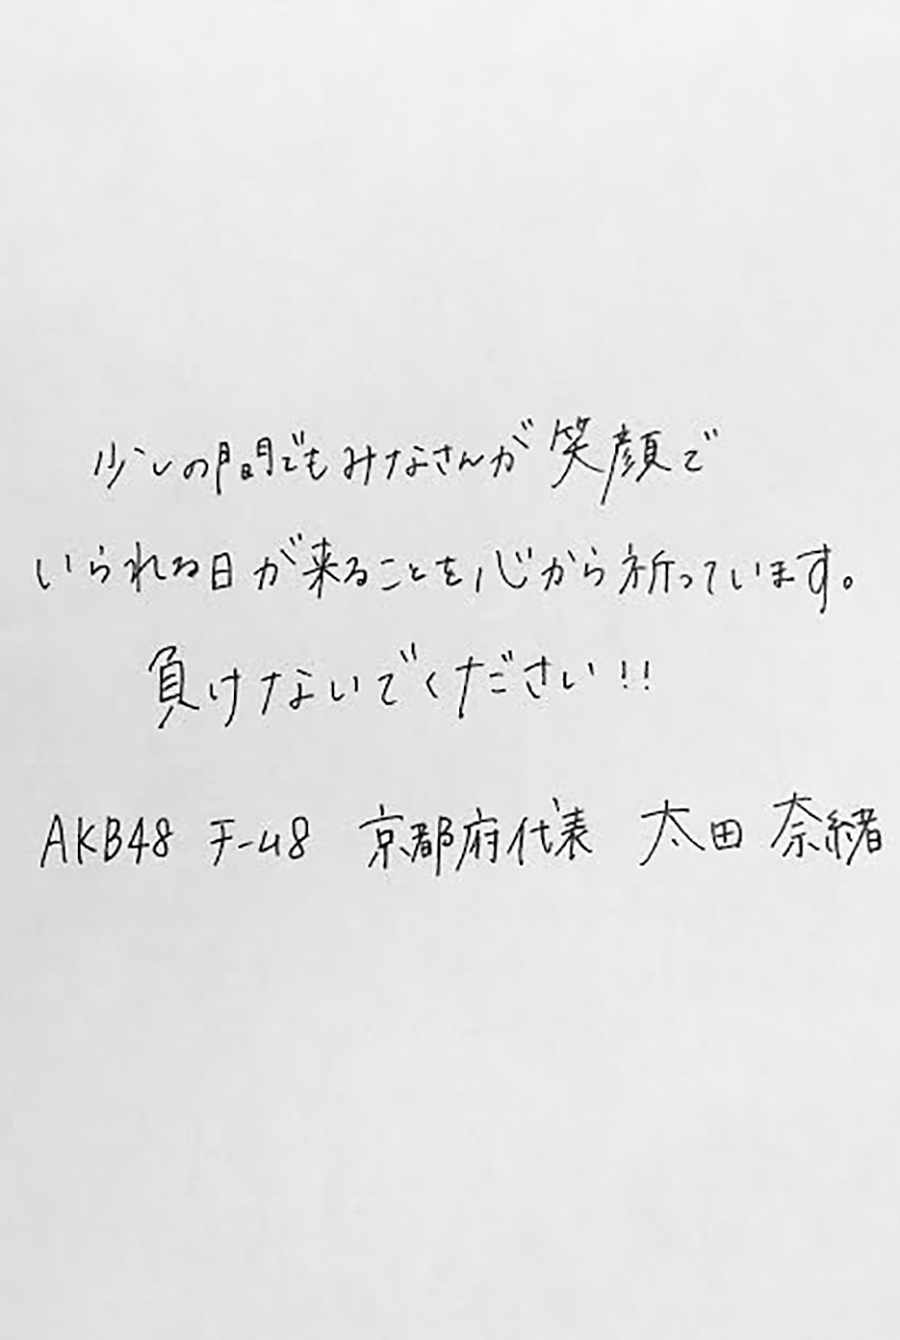 少しの間でもみなさんが笑顔で
いられる日が来ることを心から祈っています。
負けないでください!!
AKB48 チーム8 京都府代表 太田 奈緒